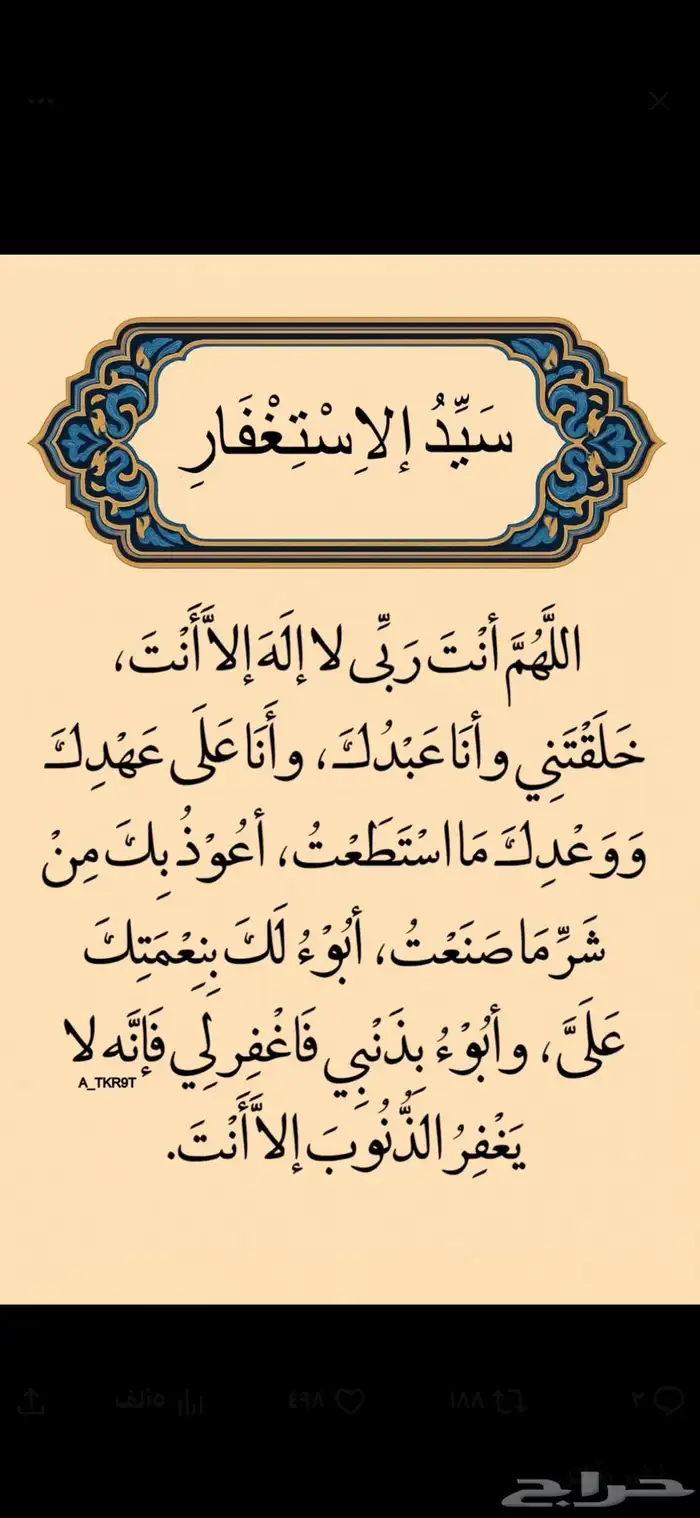 سَيِّدُ إلاِسْتِغْفَارِ
اللَّهُمَّ أنْتَ رَبِّى لا إلَهَ إلاَّ أَنْتَ،
خَلَقْتَنِي وأنَا عَبْدُكَ، وأَنَا عَلَى عَهْدِكَ
وَوَعْدِكَ مَا اسْتَطَعْتُ، أعُوْذُ بِكَ مِنْ
شَرِّ مَا صَنَعْتُ، أبُوْءُ لَكَ بِنِعْمَتِكَ
عَلَىَّ، وأبُوْءُ بِذَنْبِي فَاغْفِر لِي فَإنَّه لا
A_TKR9T
يَغْفِرُ الذُّنُوبَ إلاَّ أَنْتَ.
٢ ١٨٨ ٤٩٨ ٥ألف
حراج